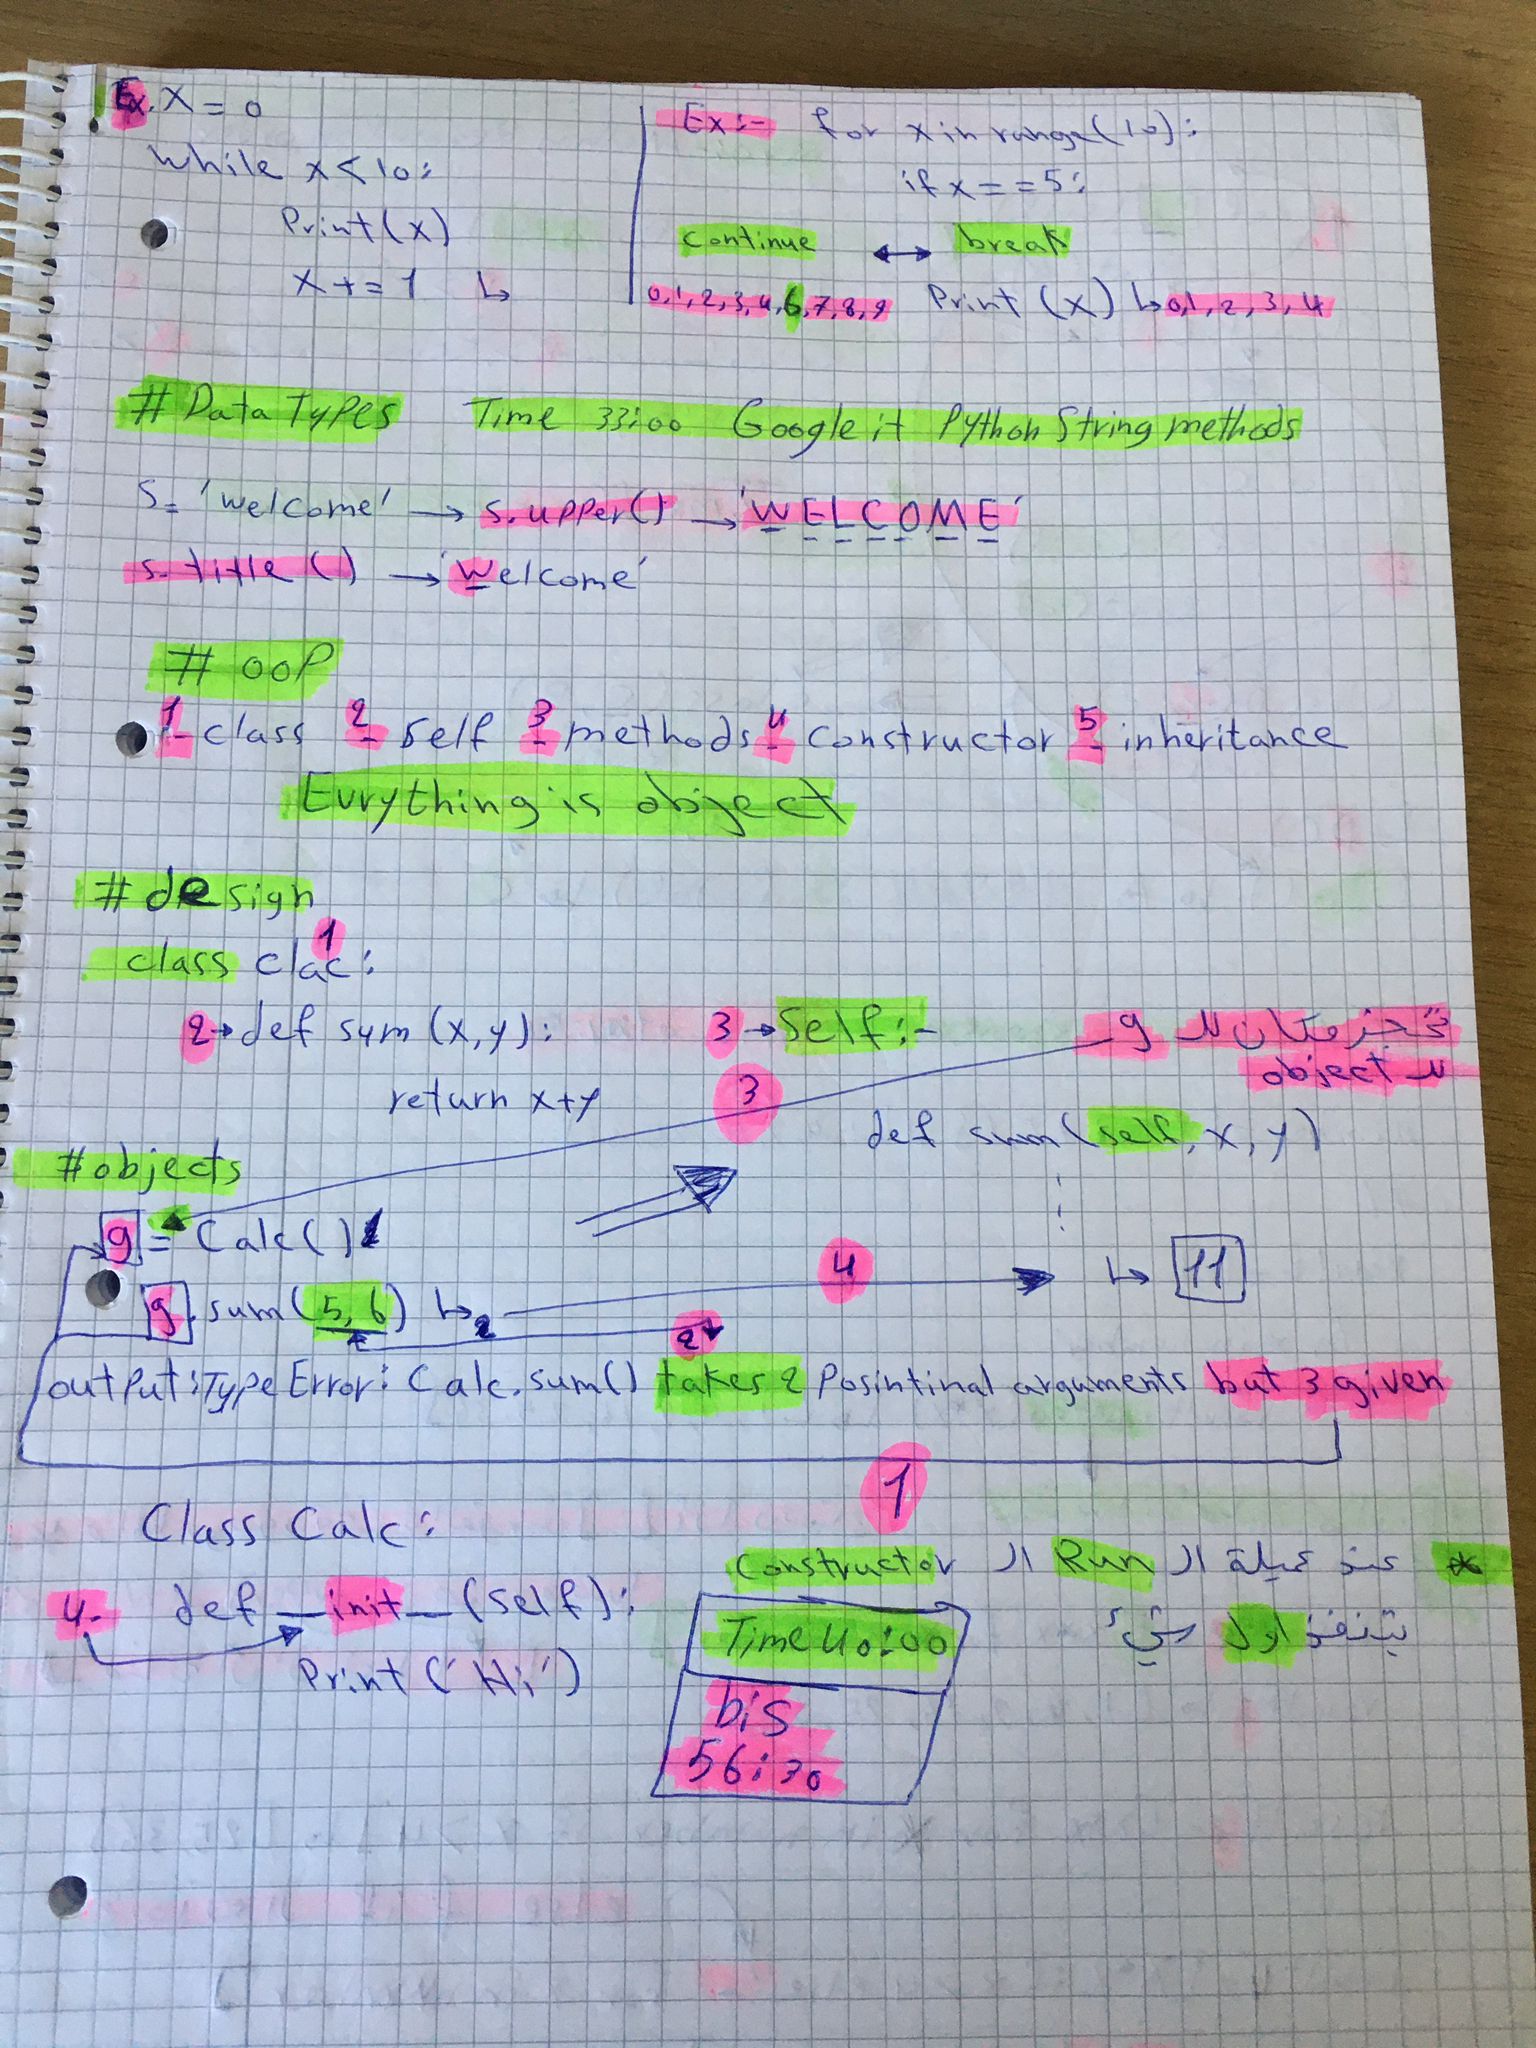 Ex. X = 0
While x < 10:
Print(x)
x += 1 ↳
Ex:- for x in range(10):
if x == 5:
continue ↔ break
0,1,2,3,4,6,7,8,9 Print (x) ↳ 0,1,2,3,4
# Data Types Time 33:00 Google it Python String methods
S = 'welcome' → s.upper() → 'WELCOME'
s.title() → 'Welcome'
# OOP
1- class 2- Self 3- methods 4- constructor 5- inheritance
Evrything is object
# design
1
class clac:
2→ def sum (x,y):
return x+y
3 → Self:- تحجز مكان للـ g
للـ object
3
def sum(self, x, y)
# objects
g = Calc() 1
g.sum(5, 6) ↳ 2
4
↳ 11
2
output: TypeError: Calc.sum() takes 2 Posintinal arguments but 3 given
1
Class Calc:
4- def __init__(self):
Print('Hi')
* عند عميلة الـ Run الـ Constructor
بتنفذ اول شيء
Time 40:00
bis
56:30